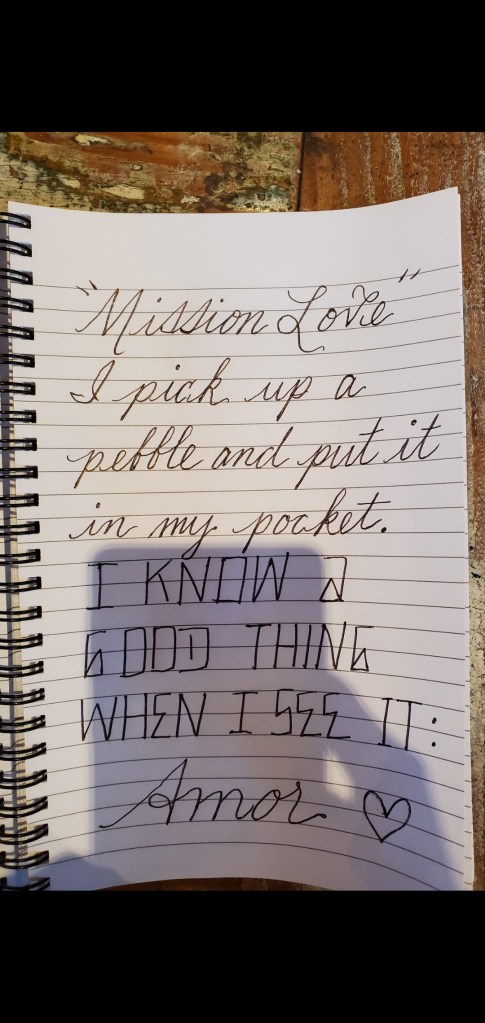 "Mission Love"
I pick up a
pebble and put it
in my pocket.
I KNOW A
GOOD THING
WHEN I SEE IT:
Amor ♡